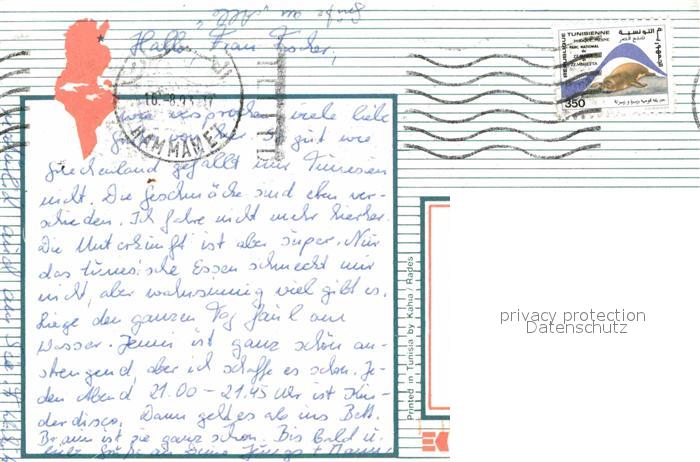 Grüße an "Alle"
Hallo, Frau Fischer,
wie versprochen viele liebe
Grüße von hier. So gut wie
Griechenland gefällt mir Tunesien
nicht. Die Geschmäcke sind eben ver-
schieden. Ich fahre nicht mehr hierher.
Die Unterkünft ist aber super. Nur
das tunesische Essen schmeckt mir
nicht, aber wahnsinnig viel gibt es.
Liege den ganzen Tag faul am
Wasser. Jenni ist ganz schön an-
strengend, aber ich schaffe es schon. Je-
den Abend 21.00 - 21.45 Uhr ist Kin-
derdisco. Dann geht es ab ins Bett.
Braun ist sie ganz schön. Bis bald u.
liebe Grüße an Deine Jungs + Mann
REPUBLIQUE TUNISIENNE
PARC NATIONAL
350
HAMMAMET
Printed in Tunisia by Kahia, Rades
privacy protection
Datenschutz